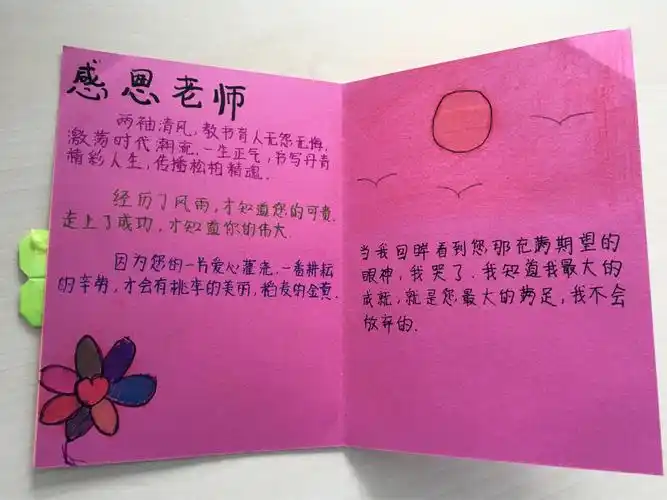 感恩老师
两袖清风,教书育人无怨无悔.
激荡时代潮流.一生正气,书写丹青
精彩人生,传播松柏精魂.
经历了风雨,才知道您的可贵.
走上了成功,才知道您的伟大.
因为您的一片爱心灌浇,一番耕耘
的辛劳,才会有桃李的美丽,稻麦的金黄.
当我回眸看到您,那充满期望的
眼神,我哭了.我知道我最大的
成就,就是您最大的满足,我不会
放弃的.